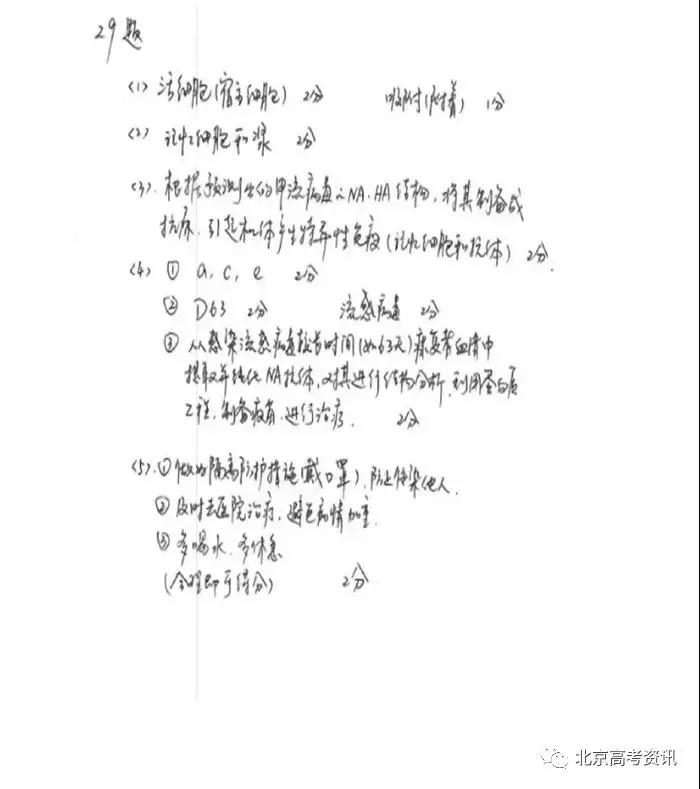 29题
(1) 活细胞(宿主细胞) 2分 吸附(附着) 1分
(2) 记忆细胞和浆 2分
(3). 根据预测出的甲流病毒的NA.HA结构,将其制备成
抗原.引起机体产生特异性免疫(记忆细胞和抗体) 2分.
(4) ① a, c, e 2分
② D63 2分 流感病毒 2分
③ 从感染流感病毒较长时间(如63天)康复者血清中
提取并纯化NA抗体,对其进行结构分析,利用蛋白质
工程,制备疫苗.进行治疗. 2分
(5).①做好隔离防护措施(戴口罩),防止传染他人.
②及时去医院治疗,避免病情加重.
③多喝水.多休息
(合理即可得分) 2分
北京高考资讯